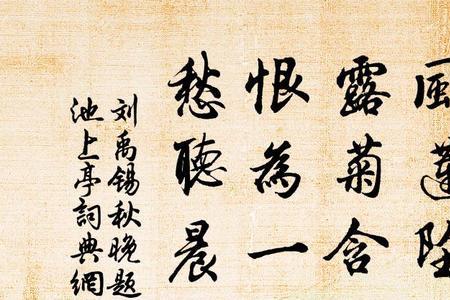 風蓮墜
露菊含
恨為一
愁聽晨
刘禹锡秋晚題
池上亭詞典網